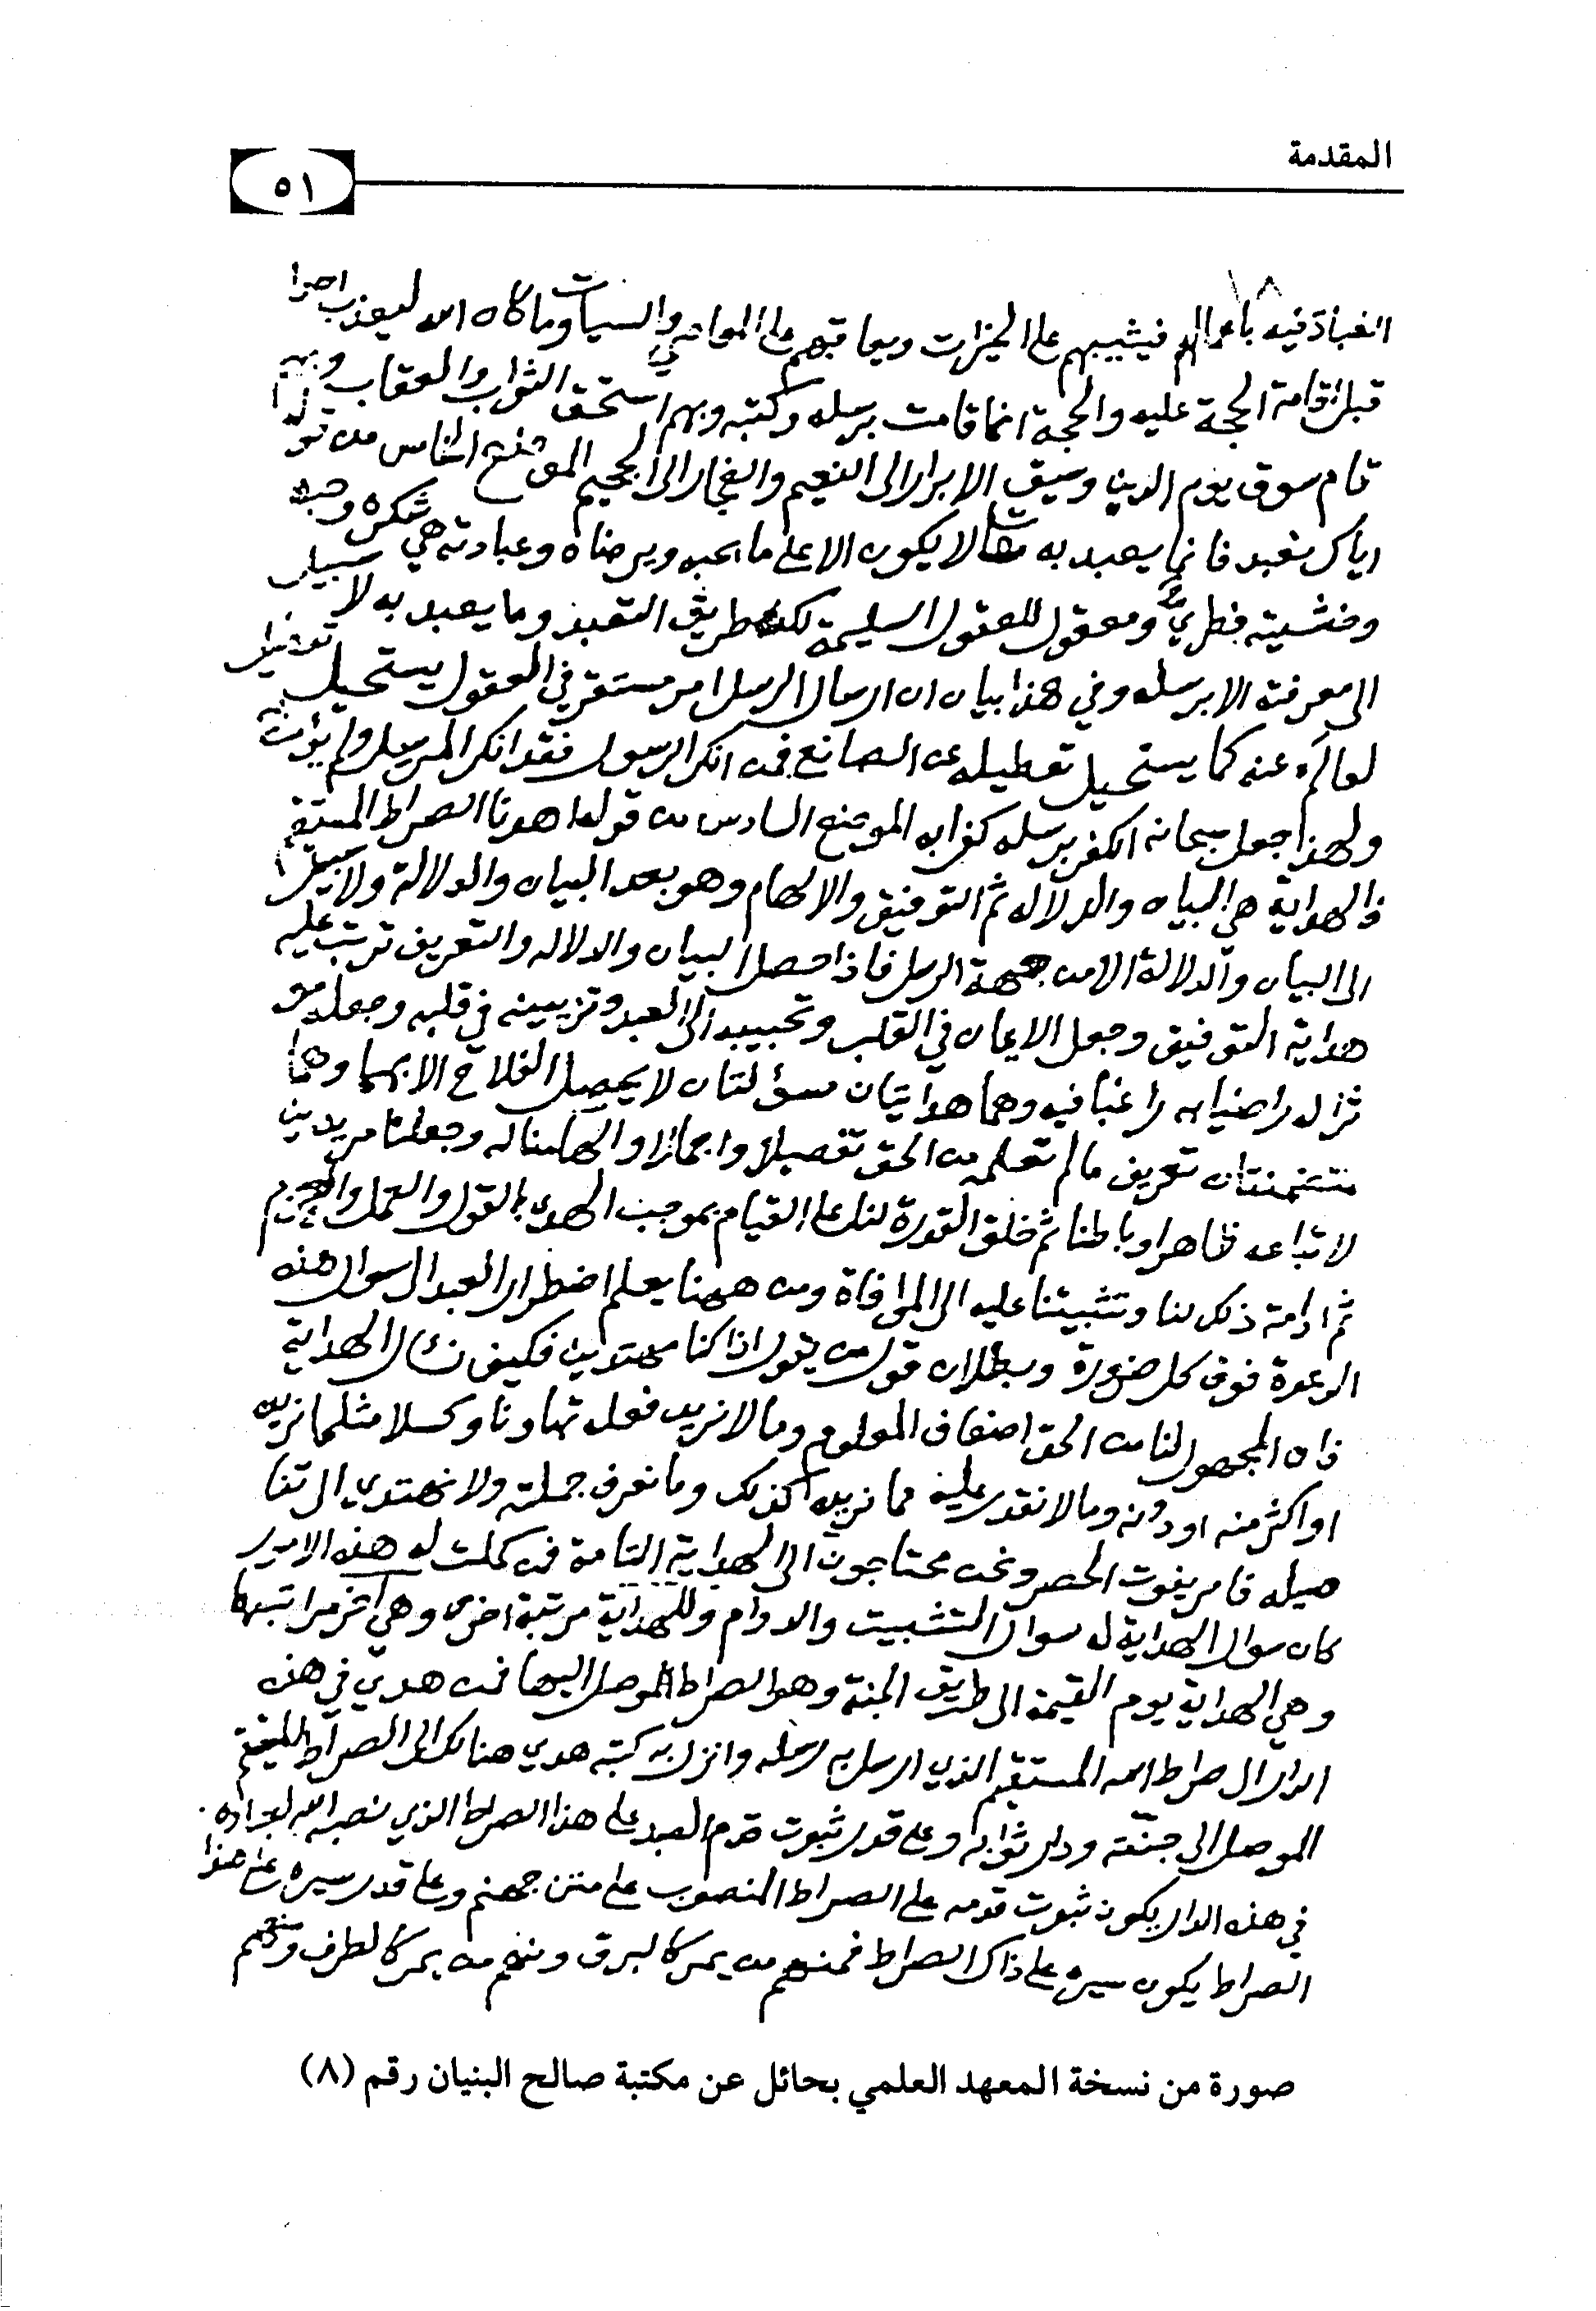 المقدمة
٥١
العباد فيه باعمالهم فيثيبهم على الخيرات ويعاقبهم على المعاصي والسيآت وما كان الله ليعذب احدا
قبل اقامة الحجة عليه والحجة انما قامت برسله وكتبه وبهم استحق الثواب والعقاب وبهم
قام سوق يوم الدين وسيق الابرار الى النعيم والفجار الى الجحيم الموضع الخامس من قوله
اياك نعبد فانما يعبد به تعالى لا يكون الا على ما يحبه ويرضاه وعبادته هي شكره وحبه
وخشيته فطري ومعقول للعقول السليمة لكن طريق التعبد وما يعبد به لا سبيل
الى معرفته الا برسله وفي هذا بيان ان ارسال الرسل امر مستقر في العقول يستحيل تعطيل
العالم عنه كما يستحيل تعطيله عن الصانع فمن انكر الرسول فقد انكر المرسل ولم يؤمن به
ولهذا جعل سبحانه الكفر برسله كفرا به الموضع السادس من قوله اهدنا الصراط المستقيم
فالهداية هي البيان والدلاله ثم التوفيق والالهام وهو بعد البيان والدلالة ولا سبيل
الى البيان والدلالة الا من جهة الرسل فاذا حصل البيان والدلاله والتعريف ترتب عليه
هداية التوفيق وجعل الايمان في القلب وتحبيبه الى العبد وتزيينه في قلبه وجعله مو
ثرا له راضيا به راغبا فيه وهما هدايتان مستقلتان لا يحصل الفلاح الا بهما وهما
متضمنتان تعريف ما لم تعلمه من الحق تفصيلا واجمالا والهامنا له وجعلنا مريدين
لاتباعه ظاهرا وباطنا ثم خلق القدرة لنا على القيام بموجب الهدى بالقول والعمل والعزم
ثم ادامة ذلك لنا وتثبيتنا عليه الى الموافاة ومن ههنا يعلم اضطرار العبد الى سوال هذه
الدعوة فوق كل ضرورة وبطلان قول من يقول اذا كنا مهتدين فكيف نسال الهداية
فان المجهول لنا من الحق اضعاف المعلوم وما لا نريد فعله تهاونا وكسلا مثل ما نريده
او اكثر منه او دونه وما لا نقدر عليه مما نريده كذلك وما نعرف جملته ولا نهتدي الى تفا
صيله فامر يفوت الحصر ونحن محتاجون الى الهداية التامة فمن كملت له هذه الامور
كان سوال الهداية له سوال التثبيت والدوام وللهداية مرتبة اخرى وهي اخر مراتبها
وهي الهداية يوم القيمة الى طريق الجنة وهو الصراط الموصل اليها فمن هدي في هذه
الدار الى صراط الله المستقيم الذي ارسل به رسله وانزل به كتبه هدي هنالك الى الصراط المستقيم
الموصل الى جنته ودار ثوابه وعلى قدر ثبوت قدم العبد على هذا الصراط الذي نصبه الله لعباده
في هذه الدار يكون ثبوت قدمه على الصراط المنصوب على متن جهنم وعلى قدر سيره على هذا
الصراط يكون سيره على ذاك الصراط فمنهم من يمر كالبرق ومنهم من يمر كالطرف ومنهم
صورة من نسخة المعهد العلمي بحائل عن مكتبة صالح البنيان رقم (٨)